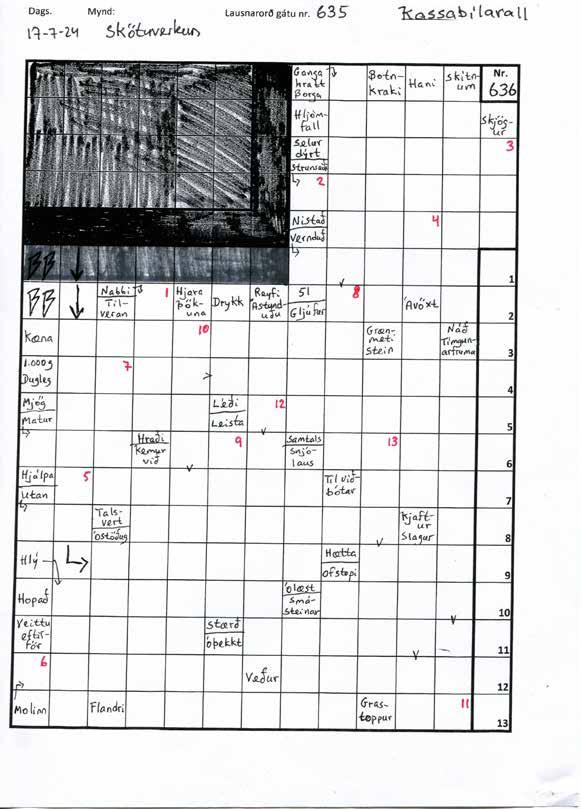 Dags. Mynd: Lausnarorð gátu nr. 635 Kassabílarall
17-7-24 Skötuverkun
Ganga hratt Borga
Botn-kraki
Hani
skitn-um
Nr. 636
Hljóm-fall
Skjög-ur
3
Selur dýrt
Strunsað
2
Nistað
4
Verndað
1
BB
BB
Nabbi
Til-veran
1
Hjara
Þök-una
Drykk
Reyfi
Ástund-uðu
51
Gljúfur
8
Ávöxt
2
Kæna
10
Græn-meti
Stein
Náð
Tímgun-artruma
3
1.000g
Dugleg
7
4
Mjög
Matur
Léði
Leista
12
5
Hraði
Kemur við
9
Samtals
Snjó-laus
13
6
Hjálpa
utan
5
Til við-bótar
7
Tals-vert
Óstöðug
Kjaft-ur
Slagur
8
Hlý
Hætta
Ofstopi
9
Hopað
Ólæst
Smá-steinar
10
Veittu eftir-för
Stærð
Óþekkt
11
6
Veður
12
Molinn
Flandri
Gras-toppur
11
13